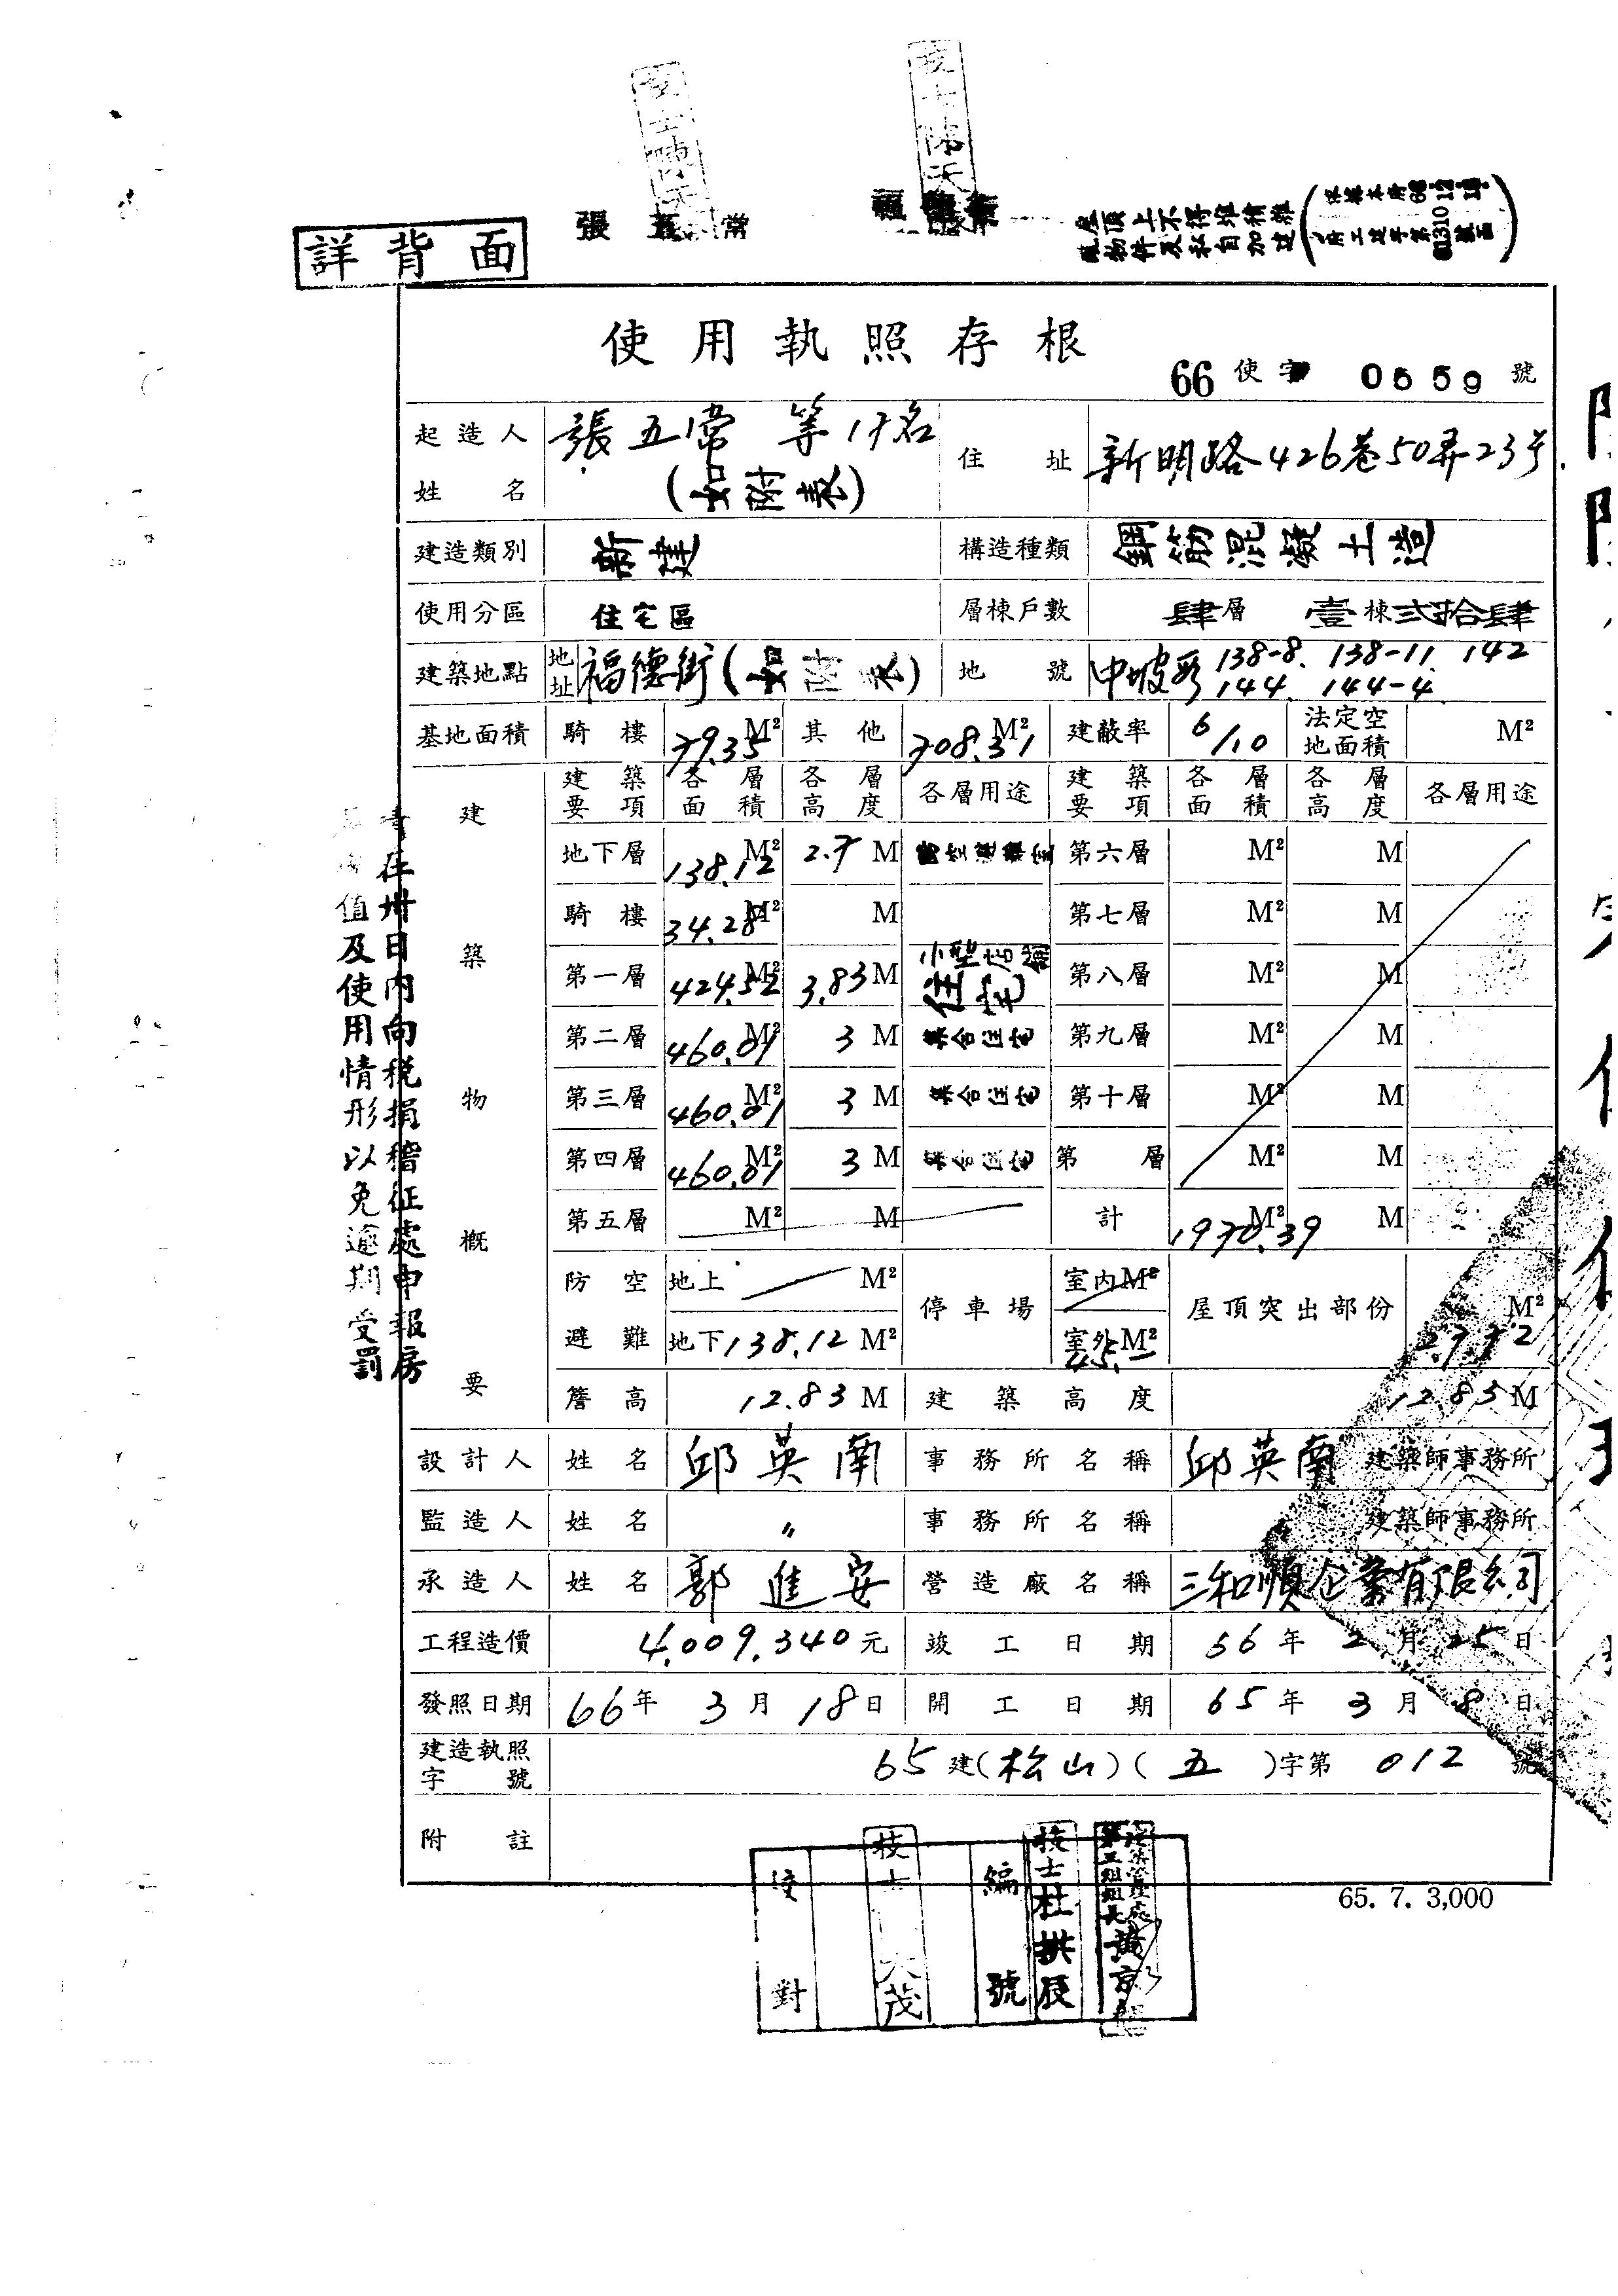 詳背面
張五常
屋頂上不得堆積雜
物件及私自加建
使用執照存根
66 使字 0559 號
起造人姓名 張五常 等17名 (如附表) 住址 新明路426巷50弄23号
建造類別 新建 構造種類 鋼筋混凝土造
使用分區 住宅區 層棟戶數 肆層 壹棟 弍拾肆
建築地點 地址 福德街(如附表) 地號 中坡段 138-8. 138-11. 142 144. 144-4
基地面積 騎樓 79.35 M² 其他 708.31 M² 建蔽率 6/10 法定空地面積 M²
建築物概要
建築要項 各層面積 各層高度 各層用途 建築要項 各層面積 各層高度 各層用途
地下層 138.12 M² 2.7 M 防空避難室 第六層 M² M
騎樓 34.28 M² M 第七層 M² M
第一層 424.52 M² 3.83 M 小型店舖 住宅 第八層 M² M
第二層 460.01 M² 3 M 集合住宅 第九層 M² M
第三層 460.01 M² 3 M 集合住宅 第十層 M² M
第四層 460.01 M² 3 M 集合住宅 第 層 M² M
第五層 M² M 計 1970.39 M² M
防空避難 地上 M² 停車場 室內 M² 屋頂突出部份 M²
地下 138.12 M² 室外 M² 45.
簷高 12.83 M 建築高度 12.83 M
設計人 姓名 邱英南 事務所名稱 邱英南 建築師事務所
監造人 姓名 〃 事務所名稱 建築師事務所
承造人 姓名 郭進安 營造廠名稱 三和順企業有限公司
工程造價 4.009.340元 竣工日期 66年 2月 25日
發照日期 66年 3月 18日 開工日期 65年 3月 8日
建造執照字號 65建(松山)(五)字第 012 號
附註
65. 7. 3,000
校對
編號
技士杜拱辰
在卅日內向稅捐稽征處申報房
值及使用情形以免逾期受罰